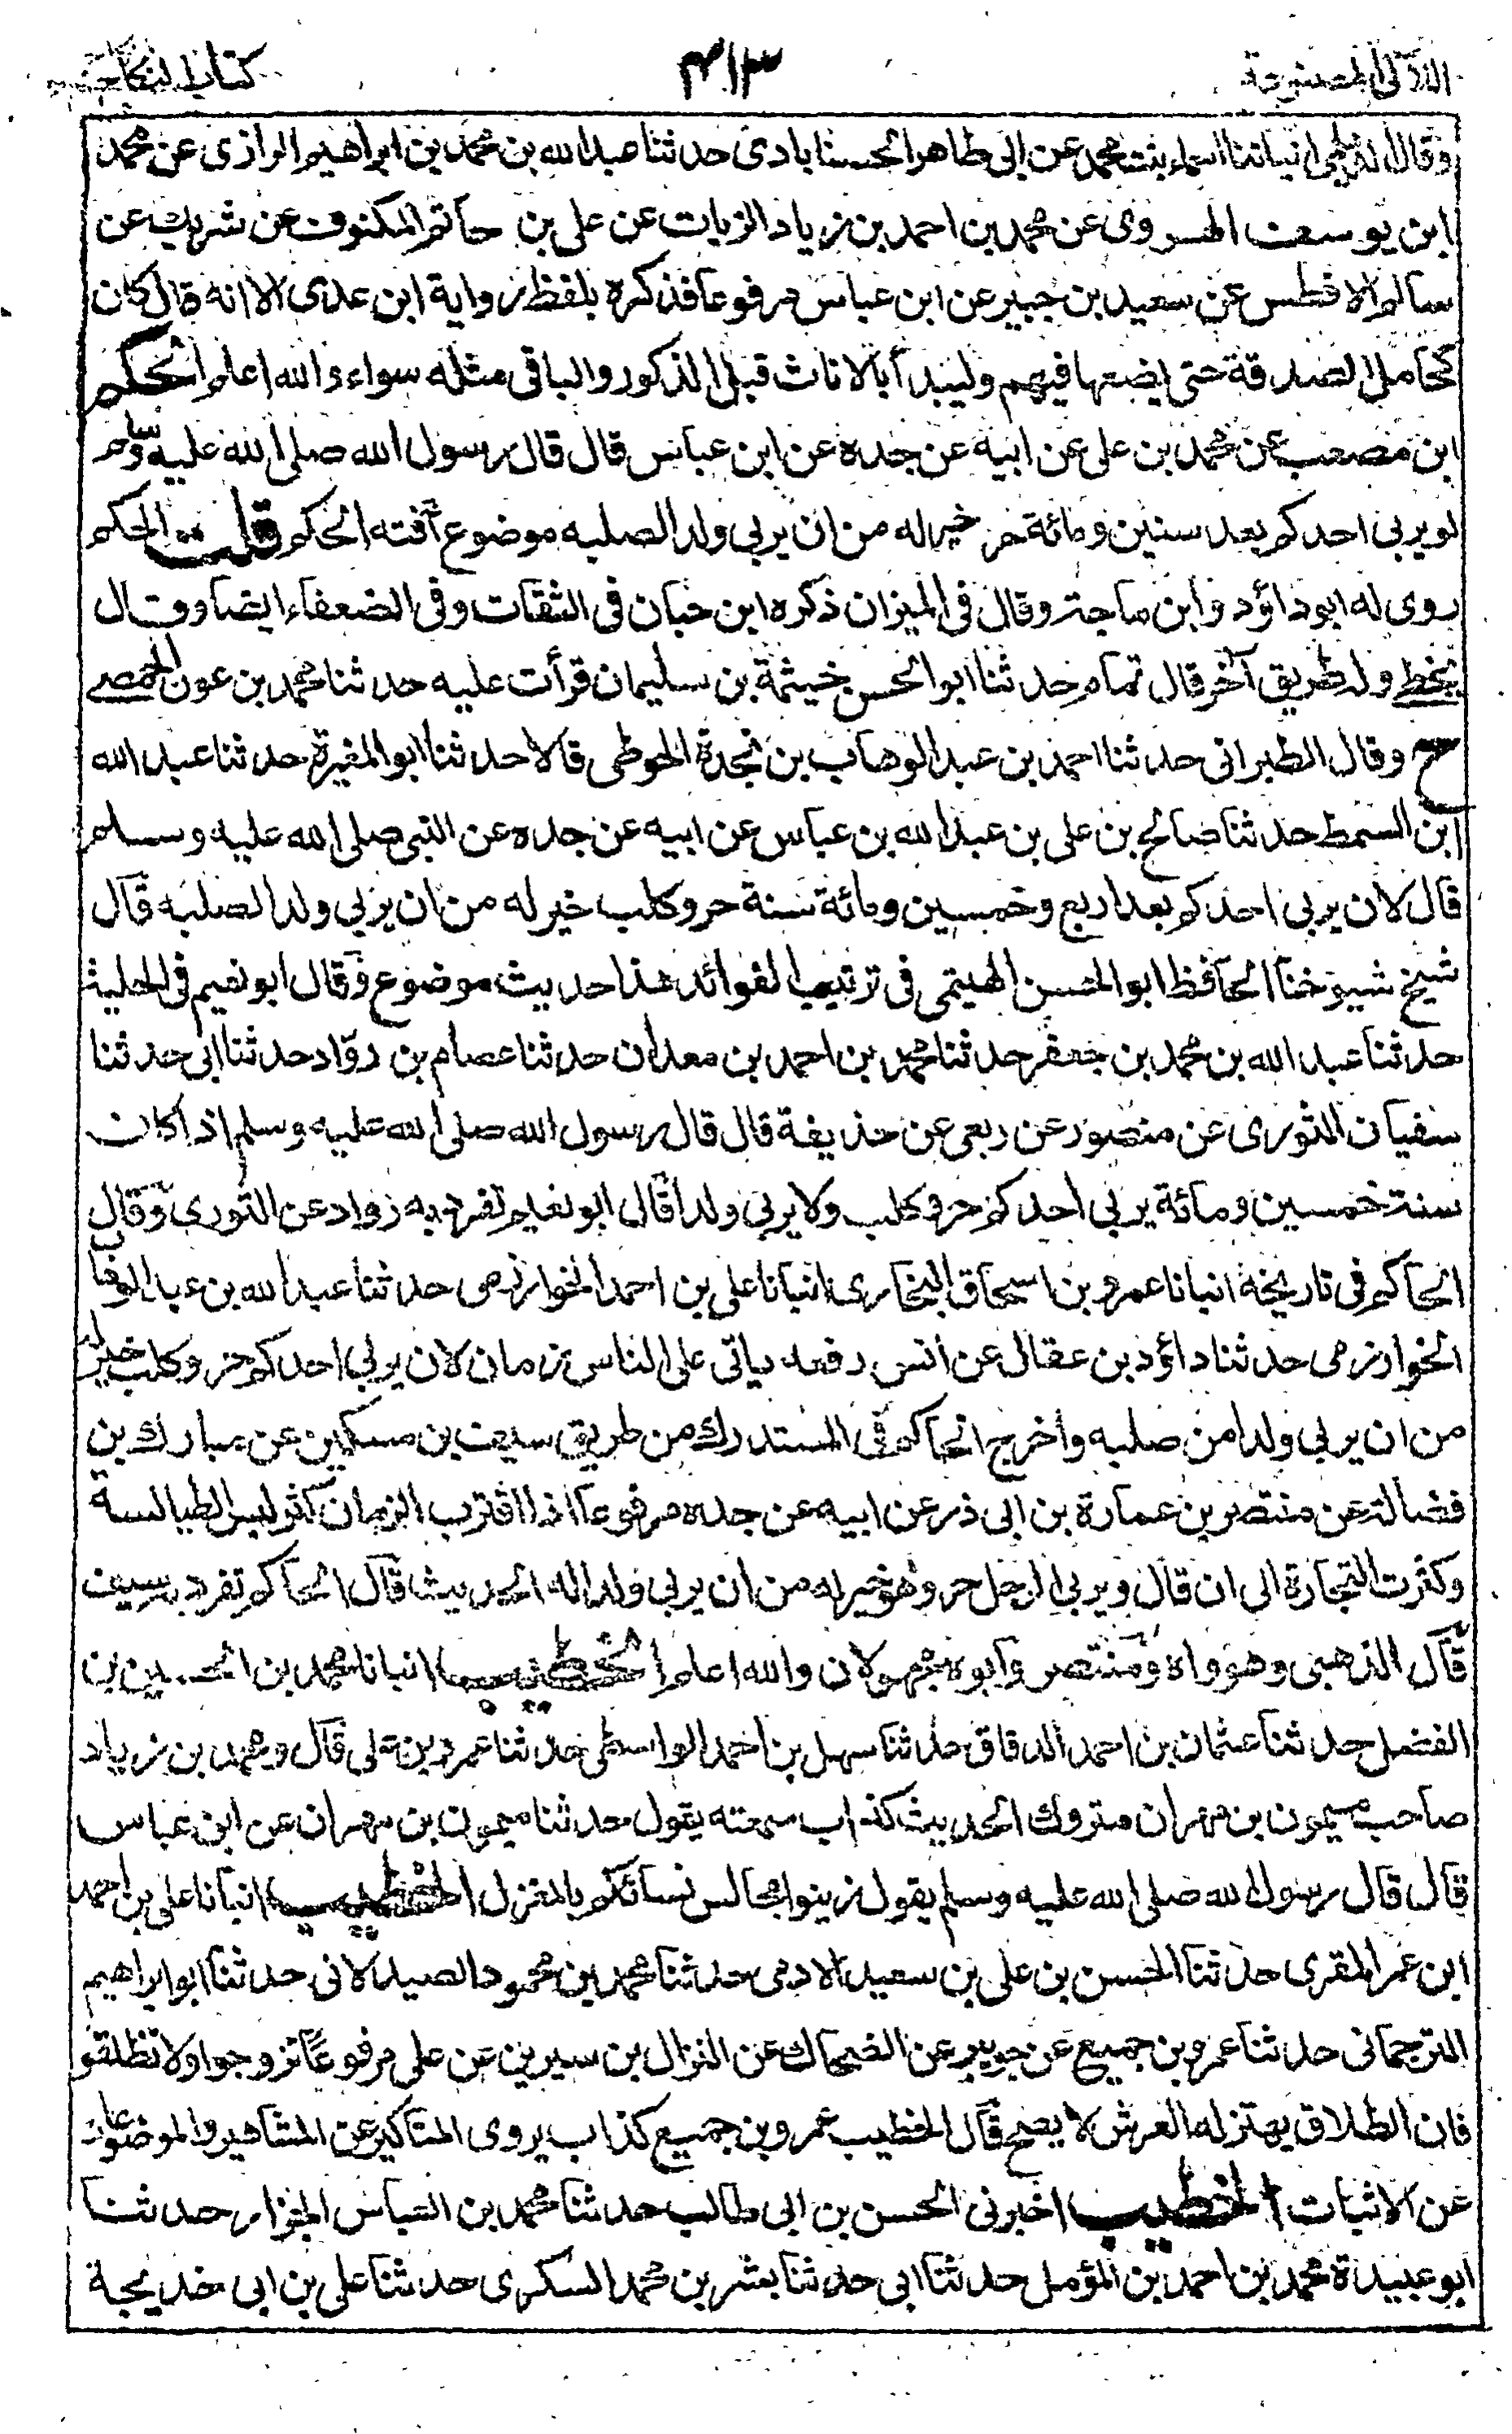 اللآلى المصنوعة ٣١٣ كتاب النكاح
وقال الديلمى انباتنا اسماء بنت محمد عن ابى طاهر الحسنابادى حدثنا عبد الله بن محمد بن ابراهيم الرازى عن محمد
ابن يوسف الهروى عن محمد بن احمد بن زياد الزيات عن على بن حاتم المكفوف عن شريك عن
سالم الافطس عن سعيد بن جبير عن ابن عباس مرفوعا فذكره بلفظ رواية ابن عدى الا انه قال كان
كحامل الصدقة حتى يضعها فيهم وليبدأ بالاناث قبل الذكور والباقى مثله سواء والله اعلم الحكم
ابن مصعب عن محمد بن على عن ابيه عن جده عن ابن عباس قال قال رسول الله صلى الله عليه وسلم
لو يربى احدكم بعد سنين ومائة جرو خير له من ان يربى ولد الصلبه موضوع آفته الحكم قلت الحكم
روى له ابو داؤد وابن ماجة وقال فى الميزان ذكره ابن حبان فى الثقات وفى الضعفاء ايضا وقال
يخطئ وله طريق آخر قال تمام حدثنا ابو الحسن خيثمة بن سليمان قرأت عليه حدثنا محمد بن عون الحمصے
ح وقال الطبرانى حدثنا احمد بن عبد الوهاب بن نجدة الحوطى قالا حدثنا ابو المغيرة حدثنا عبد الله
ابن السمط حدثنا صالح بن على بن عبد الله بن عباس عن ابيه عن جده عن النبى صلى الله عليه وسلم
قال لان يربى احدكم بعد اربع وخمسين ومائة سنة جرو كلب خير له من ان يربى ولد الصلبه قال
شيخ شيوخنا الحافظ ابو الحسن الهيثمى فى ترتيب الفوائد هذا حديث موضوع وقال ابو نعيم فى الحلية
حدثنا عبد الله بن محمد بن جعفر حدثنا محمد بن احمد بن معدان حدثنا عصام بن روّاد حدثنا ابى حدثنا
سفيان الثورى عن منصور عن ربعى عن حذيفة قال قال رسول الله صلى الله عليه وسلم اذا كان
سنة خمسين ومائة يربى احدكم جرو كلب ولا يربى ولدا قال ابو نعيم تفرد به رواد عن الثورى وقال
الحاكم فى تاريخه انبانا عمرو بن اسحاق البخارى انبانا على بن احمد الخوارزمى حدثنا عبد الله بن عبد الوهاب
الخوارزمى حدثنا داؤد بن عقال عن انس رفعه ياتى على الناس زمان لان يربى احدكم جرو كلب خير له
من ان يربى ولدا من صلبه واخرج الحاكم فى المستدرك من طريق سيف بن مسكين عن مبارك بن
فضالة عن منتصر بن عمارة بن ابى ذر عن ابيه عن جده مرفوعا اذا اقترب الزمان كثر لبس الطيالسة
وكثرت التجارة الى ان قال ويربى الرجل جروا هو خير له من ان يربى ولدا له الحديث قال الحاكم تفرد به سيف
قال الذهبى وهو واه ومنتصر وابوه مجهولان والله اعلم الخطيب انبانا محمد بن الحسين بن
الفضل حدثنا عثمان بن احمد الدقاق حدثنا سهل بن احمد الواسطى حدثنا عمرو بن على قال ومحمد بن زياد
صاحب ميمون بن مهران متروك الحديث كذاب سمعته يقول حدثنا ميمون بن مهران عن ابن عباس
قال قال رسول الله صلى الله عليه وسلم يقول زينوا مجالس نسائكم بالمغزل الخطيب انبانا على بن احمد
ابن عمر المقرى حدثنا الحسن بن على بن سعيد الادمى حدثنا محمد بن محمود الصيدلانى حدثنا ابو ابراهيم
الترجمانى حدثنا عمرو بن جميع عن جويبر عن الضحاك عن النزال بن سيرين عن على مرفوعا تزوجوا ولا تطلقوا
فان الطلاق يهتز له العرش لا يصح قال الخطيب عمرو بن جميع كذاب يروى المناكير عن المشاهير والموضوعات
عن الاثبات الخطيب اخبرنى الحسن بن ابى طالب حدثنا محمد بن العباس الخزاز حدثنا
ابو عبيدة محمد بن احمد بن المؤمل حدثنا ابى حدثنا بشر بن محمد السكرى حدثنا على بن ابى خديجة